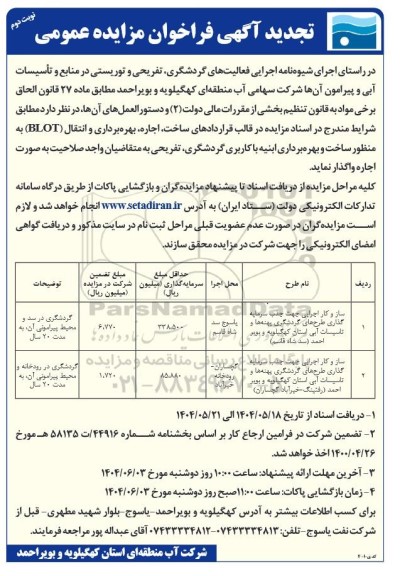 نوبت دوم
تجدید آگهی فراخوان مزایده عمومی
در راستای اجرای شیوه‌نامه اجرایی فعالیت‌های گردشگری، تفریحی و توریستی در منابع و تأسیسات
آبی و پیرامون آن‌ها شرکت سهامی آب منطقه‌ای کهگیلویه و بویراحمد مطابق ماده ۲۷ قانون الحاق
برخی مواد به قانون تنظیم بخشی از مقررات مالی دولت (۲) و دستورالعمل‌های آن‌ها، در نظر دارد مطابق
شرایط مندرج در اسناد مزایده در قالب قراردادهای ساخت، اجاره، بهره‌برداری و انتقال (BLOT) به
منظور ساخت و بهره‌برداری ابنیه با کاربری گردشگری، تفریحی به متقاضیان واجد صلاحیت به صورت
اجاره واگذار نماید.
کلیه مراحل مزایده از دریافت اسناد تا پیشنهاد مزایده‌گران و بازگشایی پاکات از طریق درگاه سامانه
تدارکات الکترونیکی دولت (ستاد ایران) به آدرس www.setadiran.ir انجام خواهد شد و لازم
است مزایده‌گران در صورت عدم عضویت قبلی مراحل ثبت نام در سایت مذکور و دریافت گواهی
امضای الکترونیکی را جهت شرکت در مزایده محقق سازند.
ردیف | نام طرح | محل اجرا | حداقل مبلغ سرمایه‌گذاری (میلیون ریال) | مبلغ تضمین شرکت در مزایده (میلیون ریال) | توضیحات
۱ | ساز و کار اجرایی جهت جذب سرمایه گذاری طرح‌های گردشگری پهنه‌ها و تاسیسات آبی استان کهگیلویه و بویر احمد (سد شاه قاسم) | یاسوج سد شاه قاسم | ۳۳۸،۵۰۰ | ۶،۷۷۰ | گردشگری در سد و محیط پیرامونی آن، به مدت ۲۰ سال
۲ | ساز و کار اجرایی جهت جذب سرمایه گذاری طرح‌های گردشگری پهنه‌ها و تاسیسات آبی استان کهگیلویه و بویر احمد (رفتینگ-خیرآباد گچساران) | گچساران- رودخانه خیرآباد | ۸۵،۸۸۰ | ۱،۷۲۰ | گردشگری در رودخانه و محیط پیرامونی آن، به مدت ۲۰ سال
۱- دریافت اسناد از تاریخ ۱۴۰۴/۰۵/۱۸ الی ۱۴۰۴/۰۵/۲۱
۲- تضمین شرکت در فرآمین ارجاع کار بر اساس بخشنامه شماره ۴۴۹۱۶/ت ۵۸۱۳۵ هـ مورخ
۱۴۰۰/۰۴/۲۶ اخذ خواهد شد.
۳- آخرین مهلت ارائه پیشنهاد: ساعت ۱۰:۰۰ روز دوشنبه مورخ ۱۴۰۴/۰۶/۰۳
۴- زمان بازگشایی پاکات: ساعت ۱۱:۰۰ صبح روز دوشنبه مورخ ۱۴۰۴/۰۶/۰۳
برای کسب اطلاعات بیشتر به آدرس کهگیلویه و بویراحمد-یاسوج-بلوار شهید مطهری- قبل از
شرکت نفت یاسوج-تلفن: ۰۷۴۳۳۳۳۴۸۱۳-۰۷۴۳۳۳۳۴۸۱۲ آقای عبداله پور مراجعه فرمایند.
شرکت آب منطقه‌ای استان کهگیلویه و بویراحمد